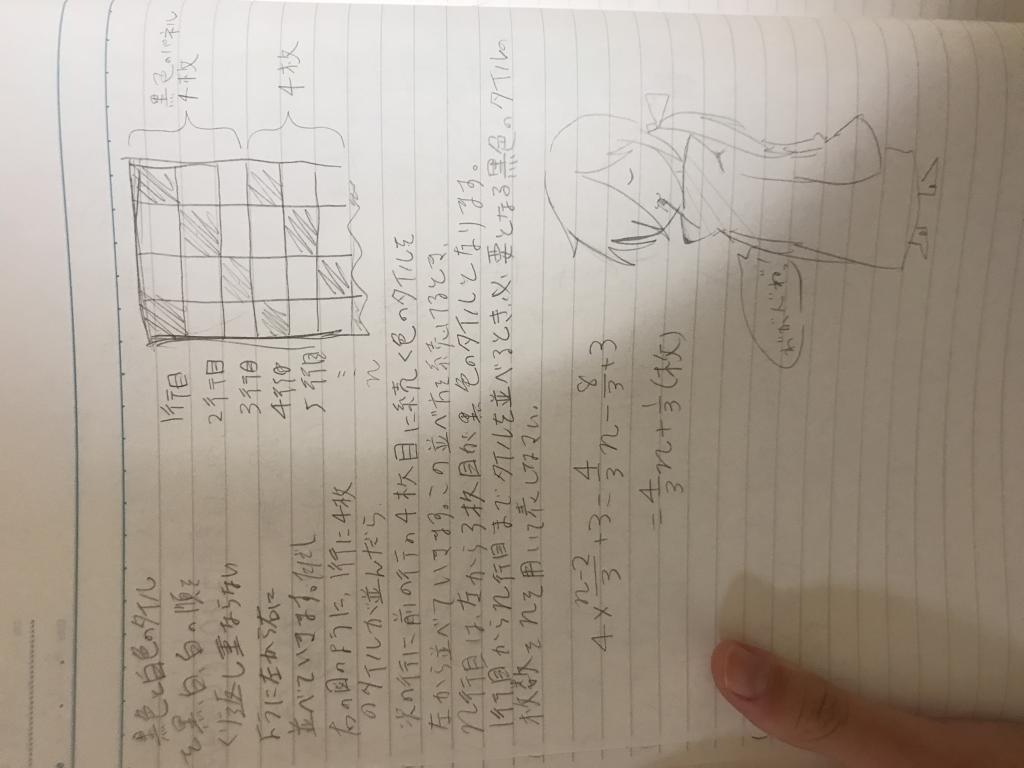 黒色と白色のタイル
を黒、白、白の順を
くり返し重ならない
ように左から右に
並べていきます。但し
右の図のように、1行に4枚
のタイルが並んだら、
1行目
2行目
3行目
4行目
5行目
=
n
黒色のパネル
4枚
4枚
次の行に前の行の4枚目に続く色のタイルを
左から並べていきます。この並べ方を続けるとき、
n行目は左から3枚目が黒色のタイルとなります。
1行目からn行目までタイルを並べるとき、必要となる黒色のタイルの
枚数をnを用いて表しなさい。
4×(n-2)/3+3=4/3n-8/3+3
=4/3n+1/3(枚)